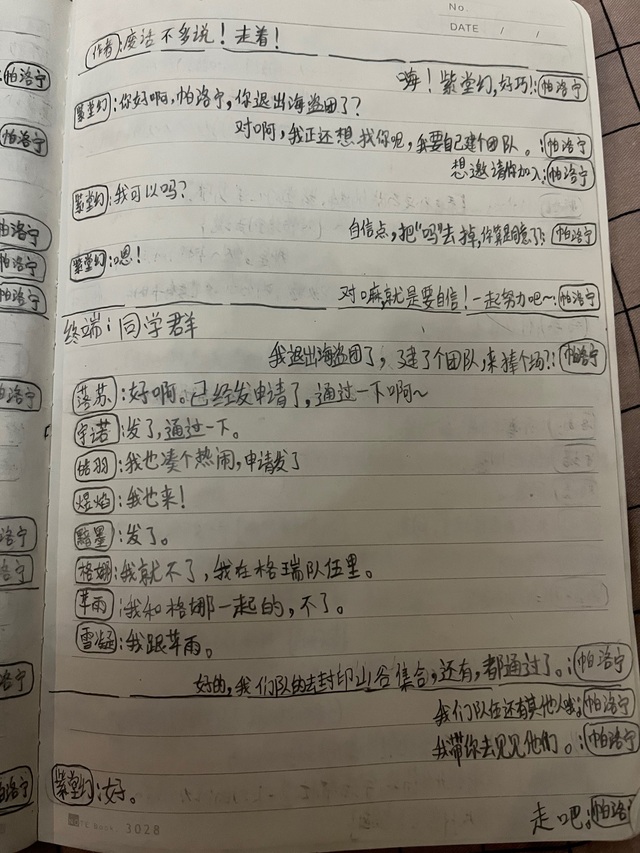 No
DATE / /
作者:废话不多说！走着！
嗨！紫堂幻,好巧!:帕洛宁
紫堂幻:你好啊,帕洛宁,你退出海盗团了?
对啊,我正还想找你呢,我要自己建个团队。:帕洛宁
想邀请你加入:帕洛宁
紫堂幻:我可以吗?
自信点,把"吗"去掉,你算 了:帕洛宁
紫堂幻:嗯!
对嘛,就是要自信！一起努力吧~:帕洛宁
终端:同学群
我退出海盗团了,建了个团队,来捧个场?:帕洛宁
落苏:好啊。已经发申请了,通过一下啊~
宇诺:发了,通过一下。
皓羽:我也凑个热闹,申请发了
煜焰:我也来!
黯墨:发了。
格娜:我就不了,我在格瑞队伍里。
苹雨:我和格娜一起的,不了。
雪凝:我跟苹雨。
好的,我们队的去封印山谷集合,还有,都通过了。:帕洛宁
我们队伍还有其他人哦:帕洛宁
我带你去见见他们。:帕洛宁
紫堂幻:好。
走吧:帕洛
NOTE Book. 3028
帕洛宁
帕洛宁
帕洛宁
帕洛宁
帕洛宁
帕洛宁